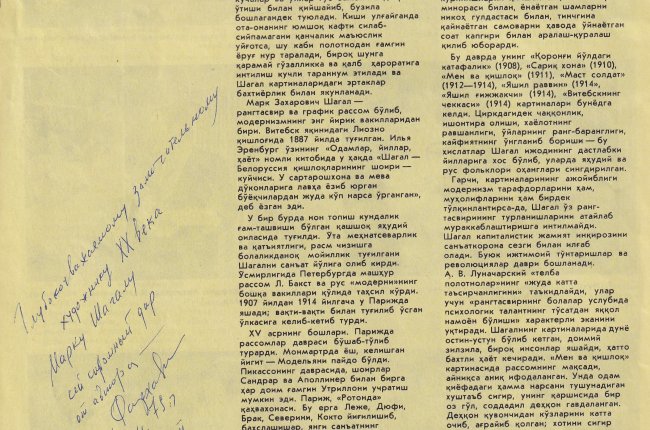 ўтиши билан кийшайиб, бузила
бошлагандек туюлади. Киши улғайганда
ота-онанинг юмшоқ кафти силаб-
сийпамагани қанчалик маъюслик
уйғотса, шу каби полотнодан ғамгин
ёруғ нур таралади, бироқ шунга
қарамай гўзалликка ва қалб ҳароратига
интилиш кучли тараннум этилади ва
Шагал картиналаридаги эртаклар
бахтиёрлик билан якунланади.
Марк Захарович Шагал —
рангтасвир ва график рассом бўлиб,
модернизмнинг энг йирик вакилларидан
бири. Витебск яқинидаги Лиозно
қишлоғида 1887 йилда туғилган. Илья
Эренбург ўзининг «Одамлар, йиллар,
ҳаёт» номли китобида у ҳақда «Шагал —
Белоруссия қишлоқларининг шоири —
куйчиси. У сартарошхона ва мева
дўконларига лавҳа ёзиб юрган
бўёқчилардан жуда кўп нарса ўрганган»,
деб ёзган эди.
У бир бурда нон топиш кундалик
ғам-ташвиши бўлган қашшоқ яҳудий
оиласида туғилди. Ўта меҳнатсеварлик
ва қатъиятлиги, расм чизишга
болаликданоқ мойиллик туғилгани
Шагални санъат йўлига олиб кирди.
Усмирлигида Петербургда машҳур
рассом Л. Бакст ва рус «модерни»нинг
бошқа вакиллари қўлида таҳсил кўрди.
1907 йилдан 1914 йилгача у Парижда
яшади; вақти-вақти билан туғилиб ўсган
ўлкасига келиб-кетиб турди.
XV асрнинг бошлари. Парижда
рассомлар давраси бўшаб-тўлиб
турарди. Монмартрда ёш, келишган
йигит — Модельяни пайдо бўлди.
Пикассонинг даврасида, шоирлар
Сандрар ва Аполлинер билан бирга
ҳар доим ғамгин Утриллони учратиш
мумкин эди. Париж, «Ротонда»
қаҳвахонаси. Бу ерга Леже, Дюфи,
Брак, Северини, Кокто йиғилишиб,
баҳслашишар, янги санъатнинг
минораси билан, ёнаётган шамларни
никоҳ гулдастаси билан, тинчгина
қайнаётган самоварни ҳавода ўйнаётган
соат капгири билан аралаш-қуралаш
қилиб юборарди.
Бу даврда унинг «Қоронғи йўлдаги
катафалик» (1908), «Сариқ хона» (1910),
«Мен ва қишлоқ» (1911), «Маст солдат»
(1912—1914), «Яшил раввин» (1914),
«Яшил ғижжакчи» (1914), «Витебскнинг
чеккаси» (1914) картиналари бунёдга
келди. Циркдагидек чаққонлик,
ишонтира олиши, хаёлотнинг
равшанлиги, ўйларнинг ранг-баранглиги,
кайфиятнинг ўнгланиб бориши — бу
хислатлар Шагал ижодининг дастлабки
йилларига хос бўлиб, уларда яҳудий ва
рус фольклори оҳанглари сингдирилган.
Гарчи, картиналарининг ажойиблиги
модернизм тарафдорларини ҳам,
муҳолифларини ҳам бирдек
тўлқинлантирса-да, Шагал ўз ранг-
тасвирининг турланишларини атайлаб
мураккаблаштиришга интилмайди.
Шагал капиталистик жамият инқирозини
санъаткорона сезги билан илғаб
олади. Буюк ижтимоий тўнтаришлар ва
революциялар даври бошланади.
А. В. Луначарский «телба
полотнолар»нинг «жуда катта
таъсирчанлигини» таъкидлайди, улар
учун «рангтасвирнинг болалар услубида
психологик талантнинг тўсатдан яққол
намоён бўлиши» характерли эканини
уқтиради. Шагалнинг картиналарида дунё
остин-устун бўлиб кетган, доимий
зилзила, бироқ инсонлар яшайди, ҳатто
бахтли ҳаёт кечиради. «Мен ва қишлоқ»
картинасида рассомнинг мақсади,
айниқса аниқ ифодаланган. Унда одам
қиёфадаги ҳамма нарсани тушунадиган
хуштаъб сигир, унинг қаршисида бир
оз гўл, соддадил деҳқон гавдаланган.
Деҳқон қувончидан кўзларини катта
очиб, ағрайиб қолган; хотини сигир
Глубокоуважаемому замечательному
художнику XX века
Марку Шагалу
дар
от автора